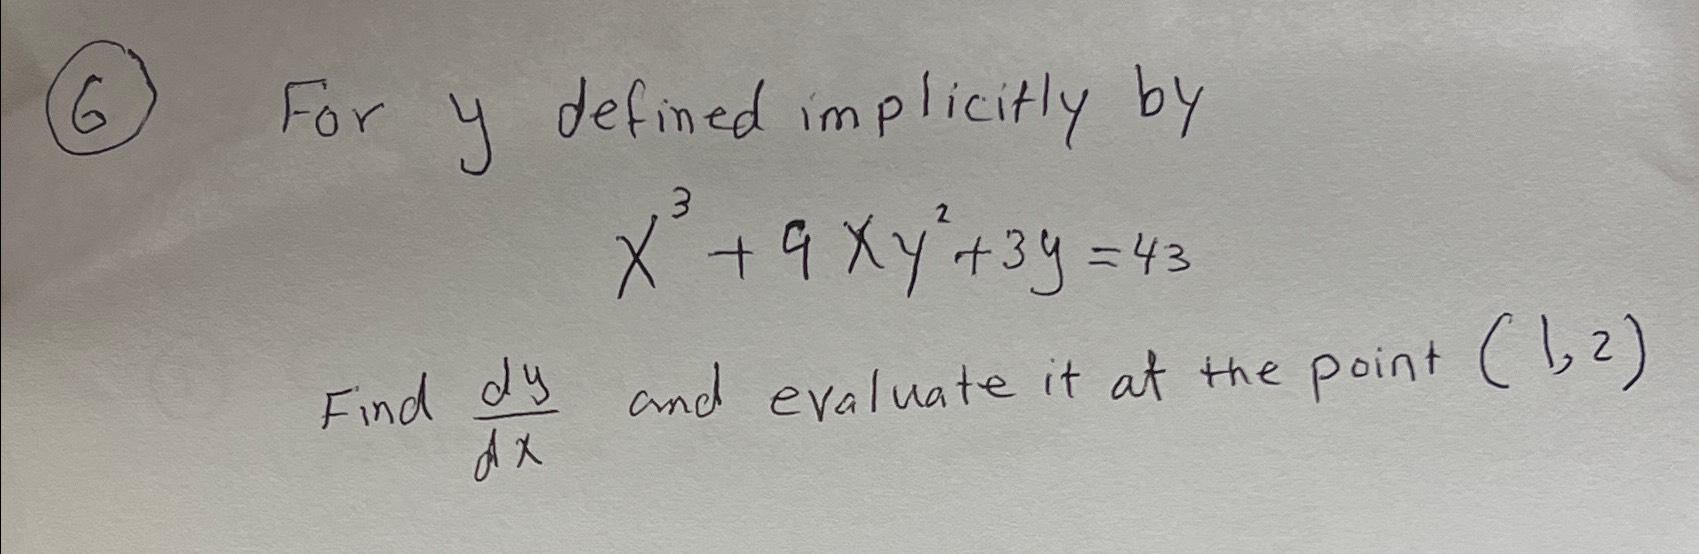 ⑥ For y defined implicitly by
x³ + 9xy² + 3y = 43
Find dy/dx and evaluate it at the point (1,2)